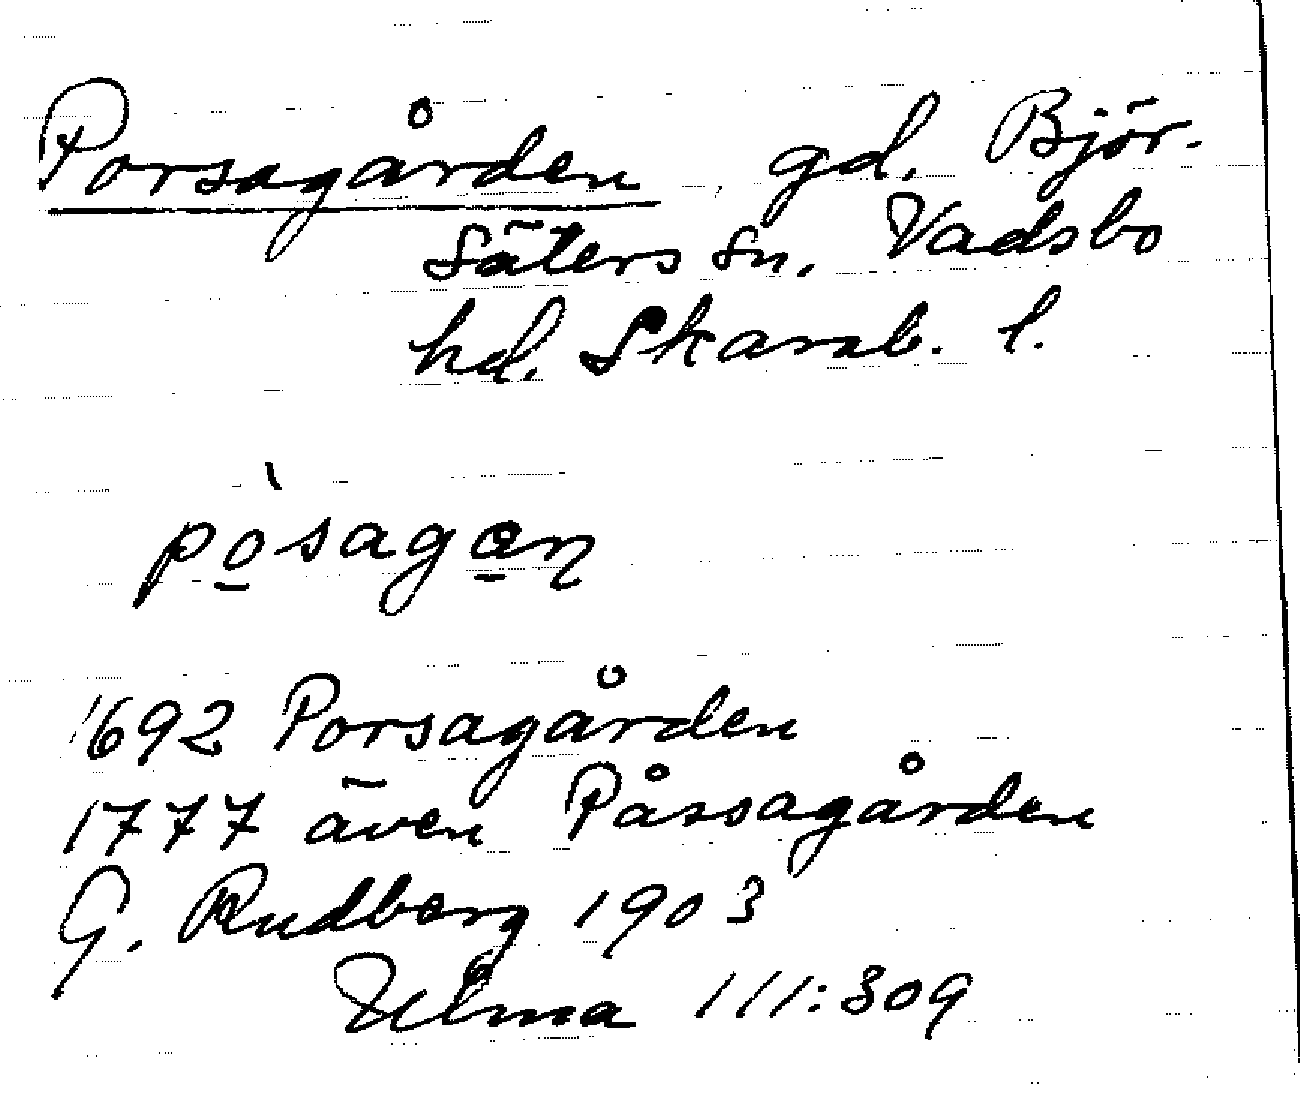 Porsagården, gd. Björ-
säters sn. Vadsbo
hd. Skarab. l.
pò̲sagə̲n
1692 Porsagården
1777 även Påssagården
G. Rudberg 1903
Ulma 111:309